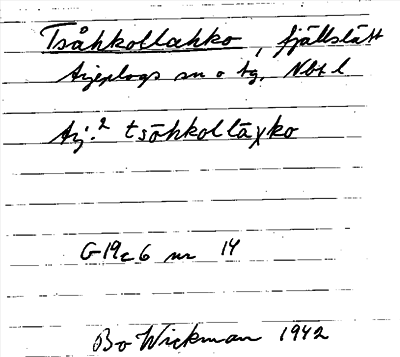 Tsåhkollahko, fjällslätt
Arjeplogs sn o tg, Nbt l
Arj.2 tsåhkoltāχko
G19c6 nr 14
Bo Wickman 1942